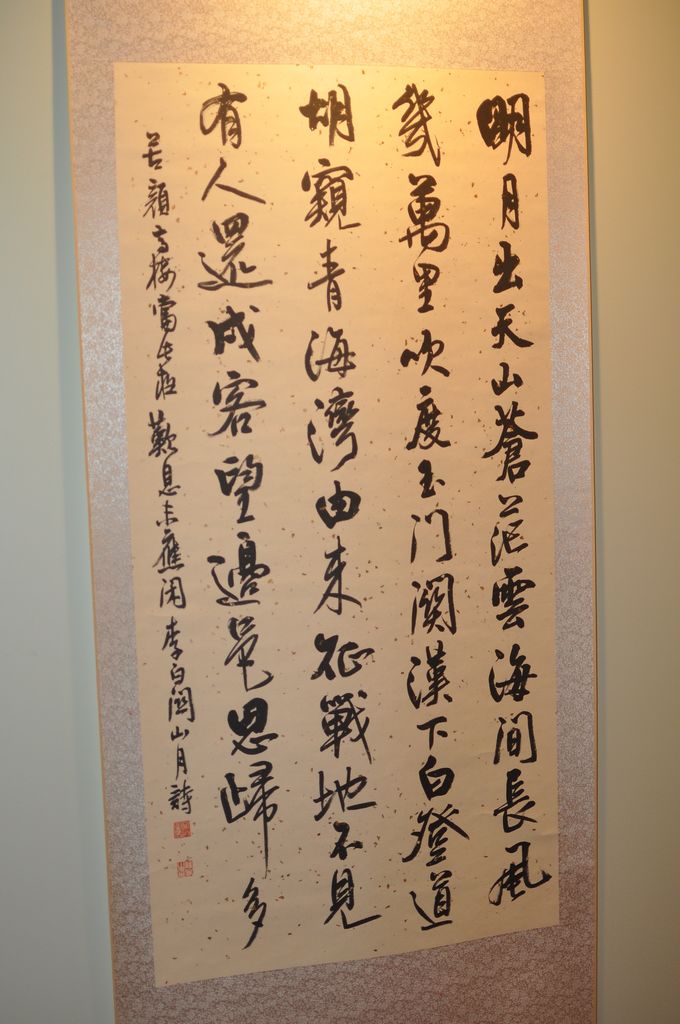 明月出天山蒼茫雲海間長風
幾萬里吹度玉门関漢下白登道
胡窺青海灣由来征戰地不見
有人還戍客望邊邑思歸多
苦顔高樓當此夜歎息未應闲李白関山月詩